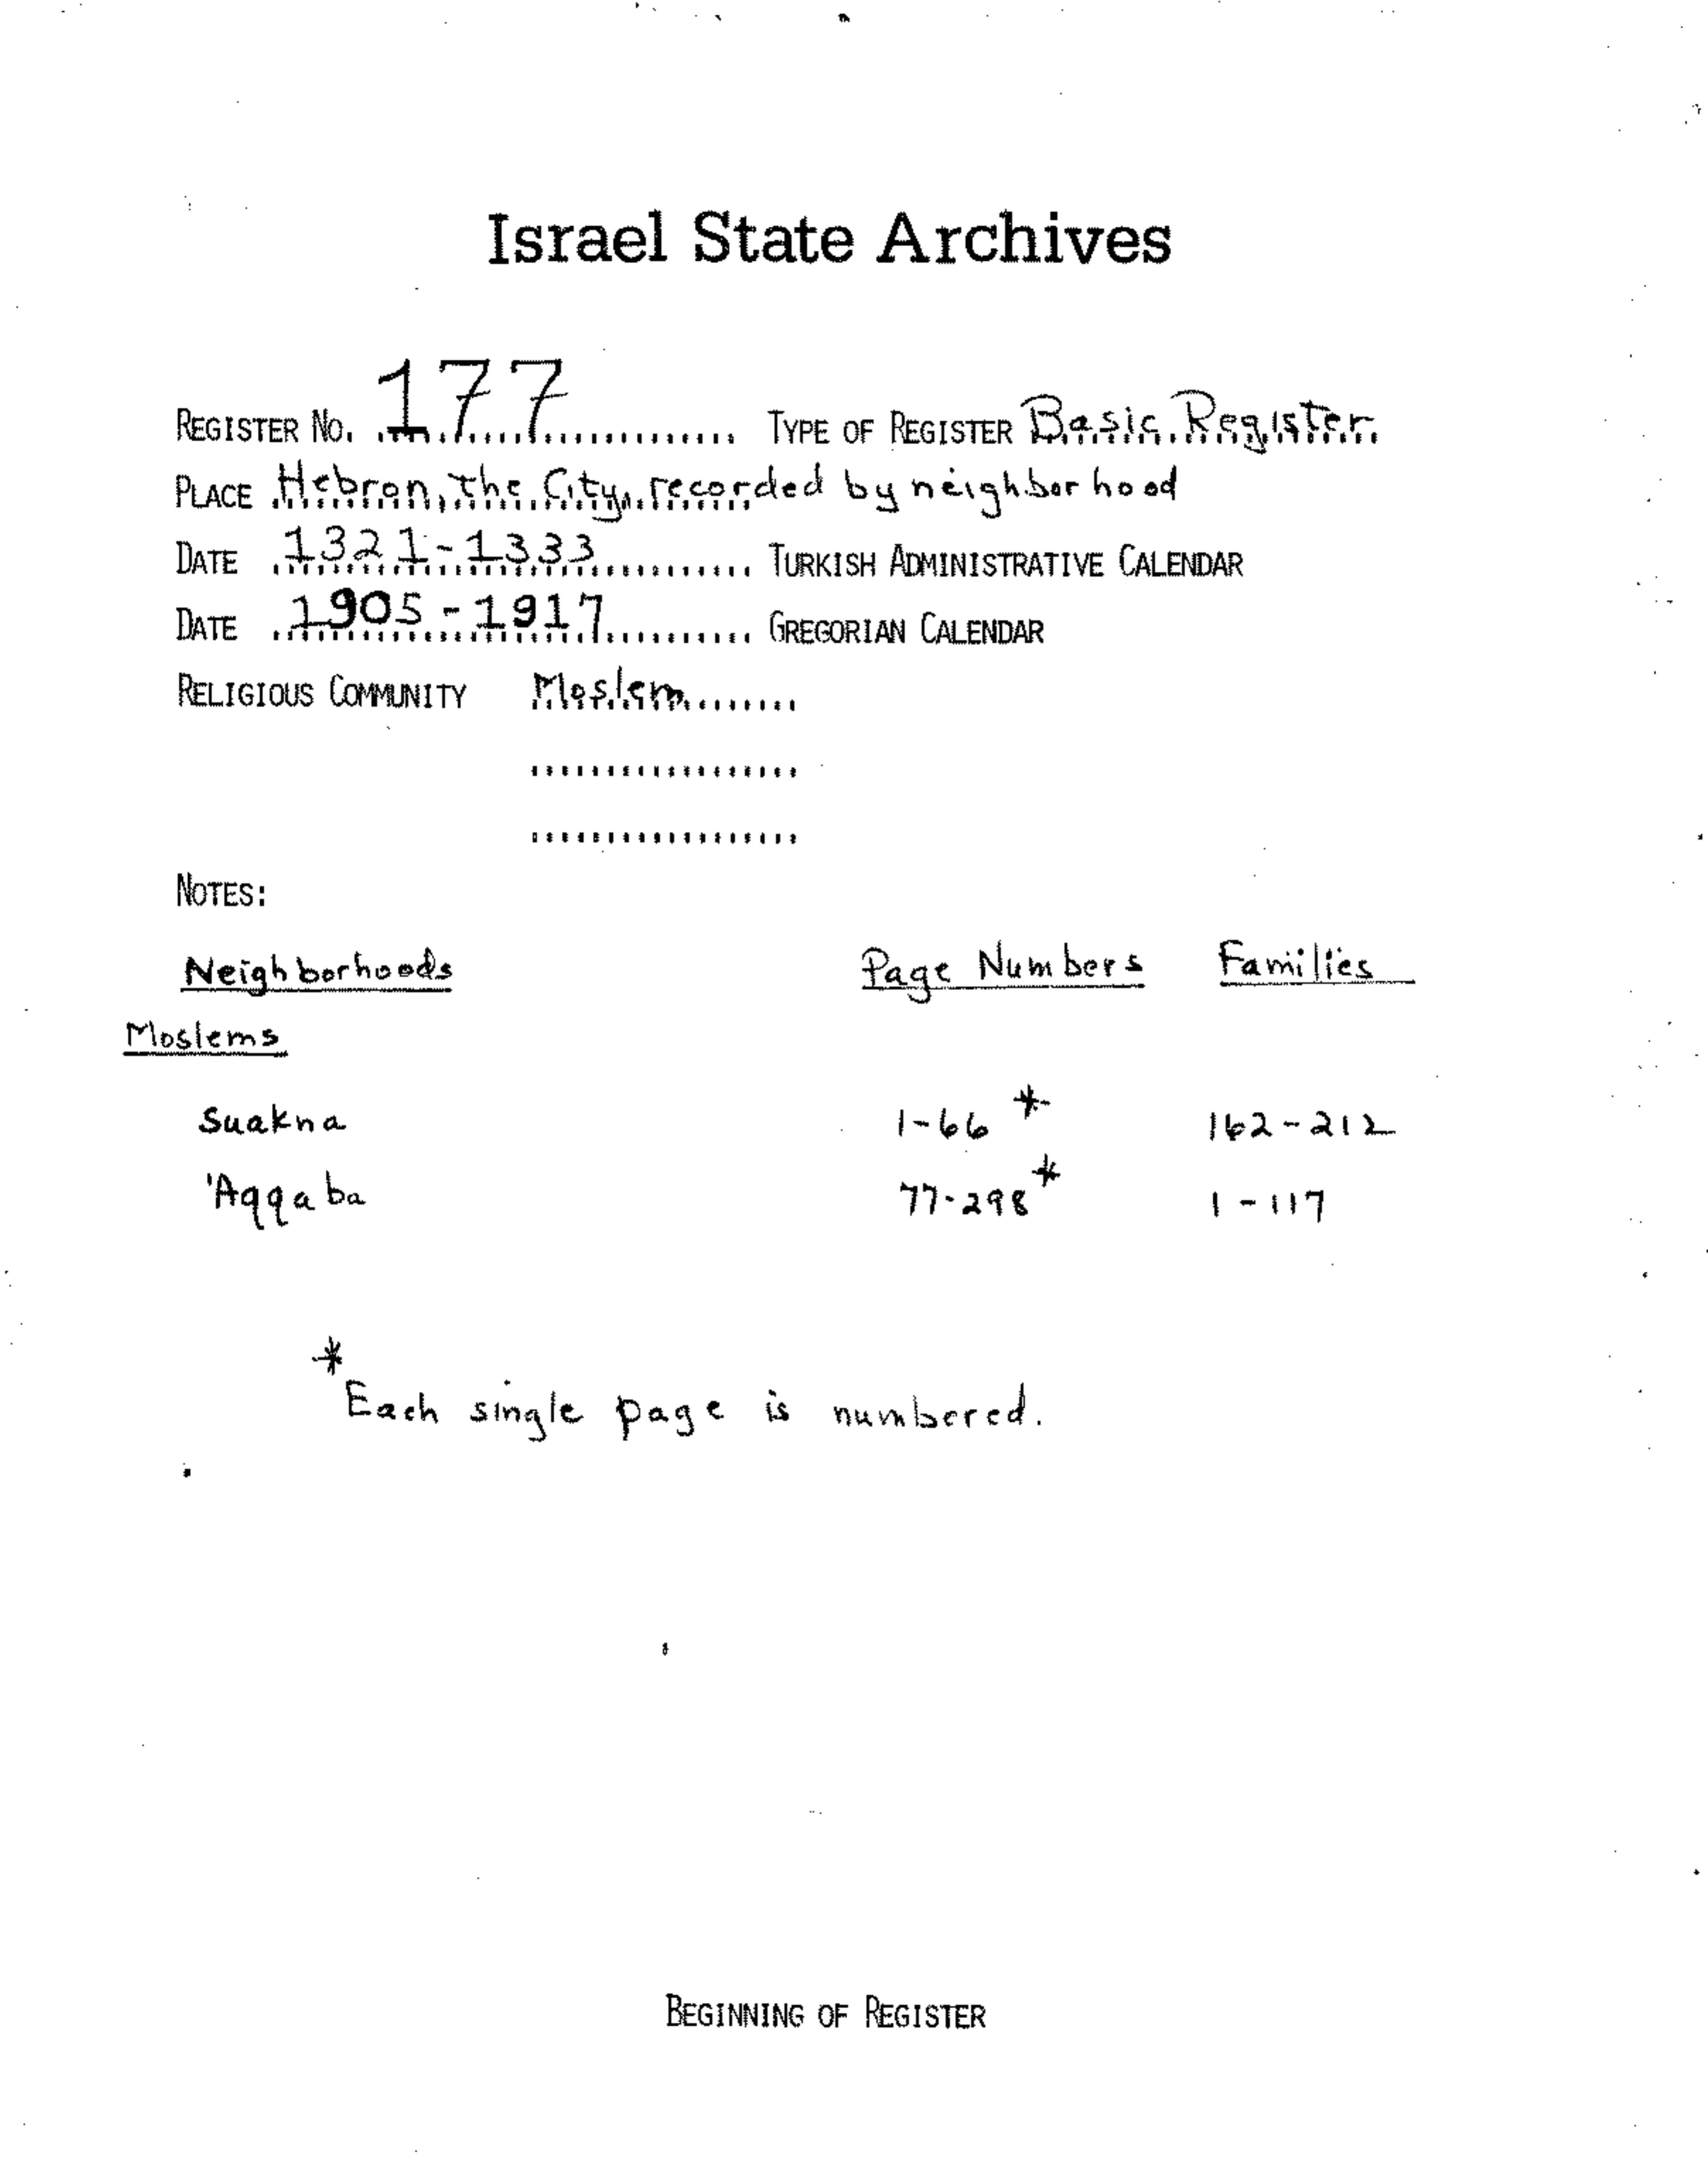 Israel State Archives
REGISTER NO. 177 TYPE OF REGISTER Basic Register
PLACE Hebron, the City, recorded by neighborhood
DATE 1321-1333 TURKISH ADMINISTRATIVE CALENDAR
DATE 1905-1917 GREGORIAN CALENDAR
RELIGIOUS COMMUNITY Moslem
NOTES:
Neighborhoods Page Numbers Families
Moslems
Suakna 1-66 * 162-212
'Aqqaba 77-298 * 1-117
* Each single page is numbered.
BEGINNING OF REGISTER